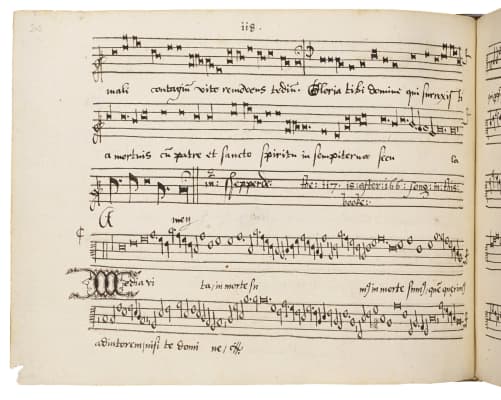 118.
mali contagiũ vite removens tediũ. Gloria tibi domine qui surrexisti
a mortuis cũ patre et sancto spiritu in sempiterna secu la
mr: Shepperde. the: 117: is after: 166: song: in: this:
booke:
A men
Media vi ta, in morte su m9 in morte sum9, quẽ querim9
adiutorem, nisi te domi ne,